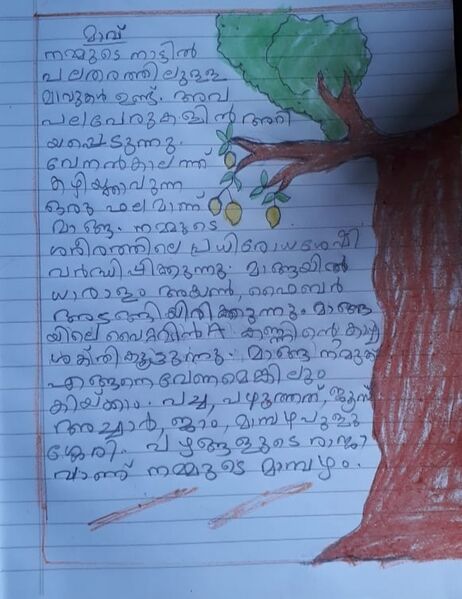 മാവ്
നമ്മുടെ നാട്ടിൽ
പലതരത്തിലുള്ള
മാവുകൾ ഉണ്ട്. അവ
പലപേരുകളിൽ അറി
യപ്പെടുന്നു.
വേനൽകാലത്ത്
കഴിയ്ക്കാവുന്ന
ഒരു ഫലമാണ്
മാങ്ങ. നമ്മുടെ
ശരീരത്തിലെ പ്രധിരോധശേഷി
വർദ്ധിപ്പിക്കുന്നു. മാങ്ങയിൽ
ധാരാളം അയൺ, ഫൈബർ
അടങ്ങിയിരിക്കുന്നു. മാങ്ങ
യിലെ വൈറ്റമിൻ A കണ്ണിന്റെ കാഴ്ച
ശക്തികൂട്ടുന്നു. മാങ്ങ നമുക്ക്
എങ്ങനെവേണമെങ്കിലും
കഴിയ്ക്കാം. പച്ച, പഴുത്തത്, ജ്യൂസ്
അച്ചാർ, ജാം, മാമ്പഴപുളി
ശ്ശേരി. പഴങ്ങളുടെ രാജാ
വാണ് നമ്മുടെ മാമ്പഴം.